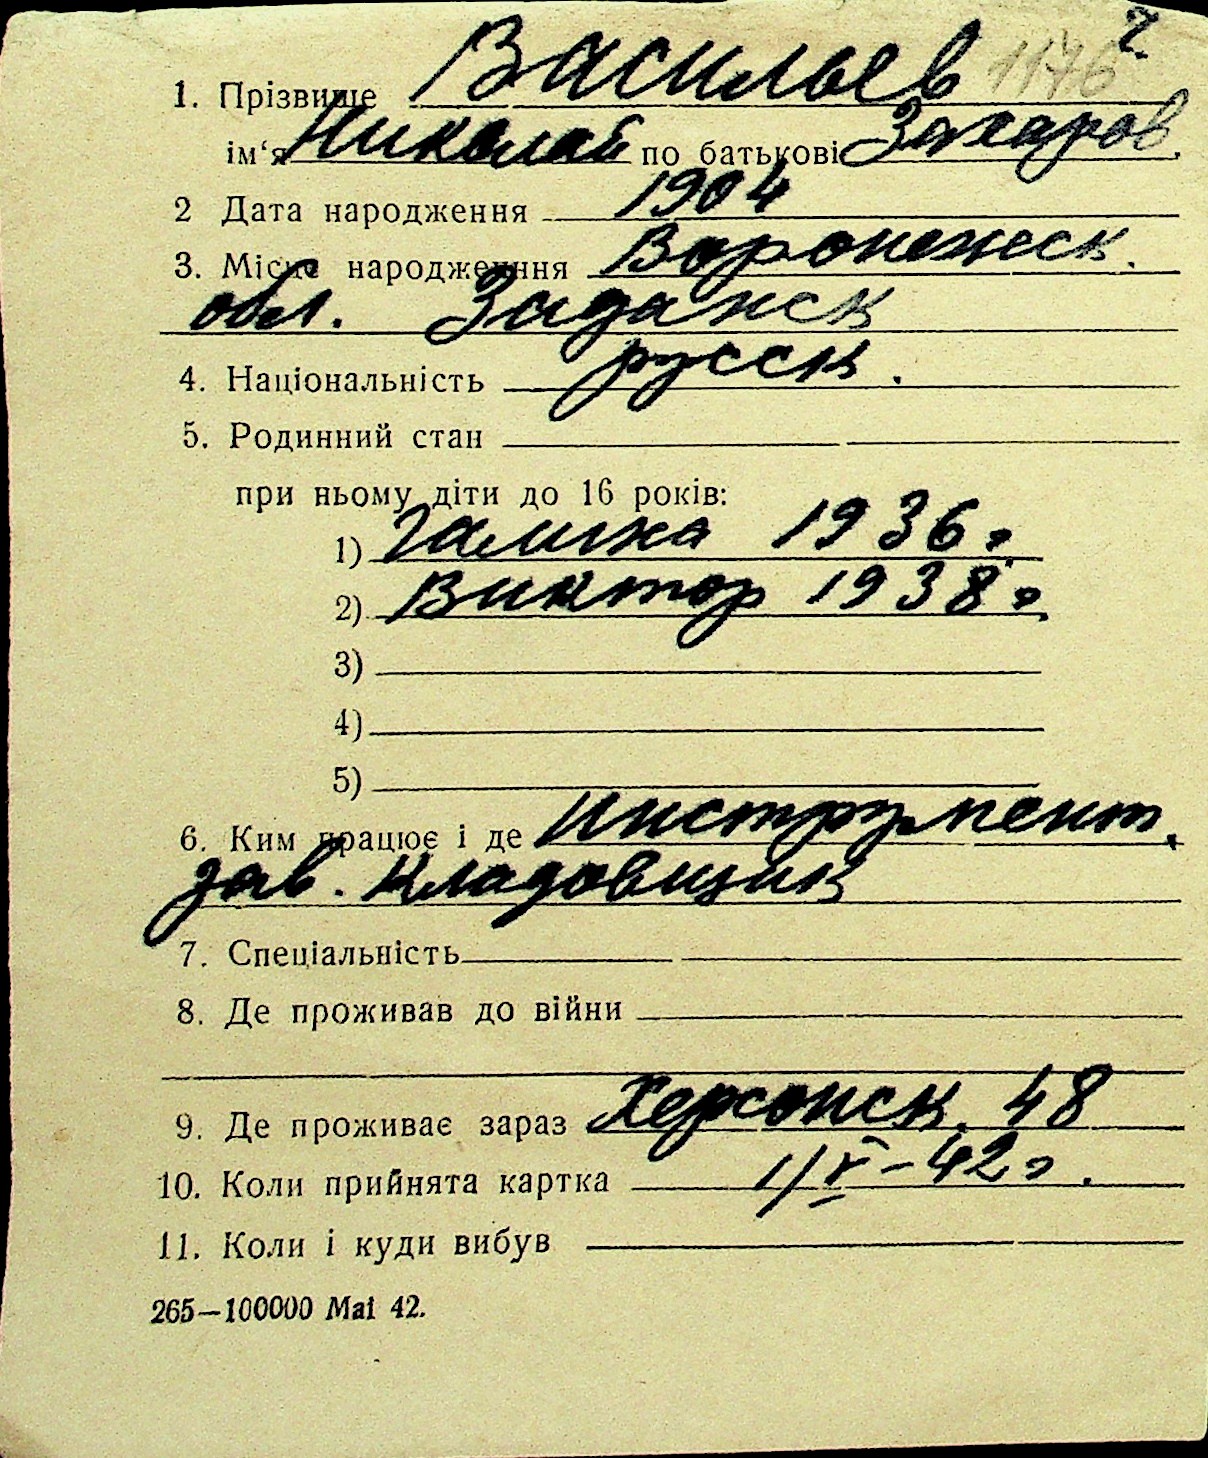 2
1176
1. Прізвище Васильев
ім‘я Николай по батькові Захаров.
2 Дата народження 1904
3. Місце народження Воронежск.
обл. Заданск
4. Національність русск.
5. Родинний стан
при ньому діти до 16 років:
1) Галина 1936 г.
2) Виктор 1938 г.
3)
4)
5)
6. Ким працює і де Инструмент.
зав. Кладовщик
7. Спеціальність
8. Де проживав до війни
9. Де проживає зараз Херсонск. 48
10. Коли прийнята картка 1/V-42 г.
11. Коли і куди вибув
265—100000 Mai 42.